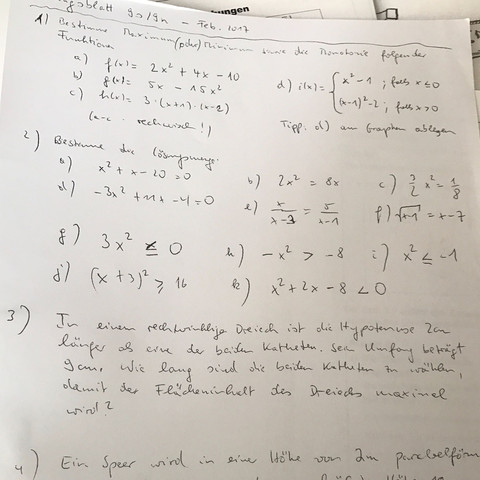 ungen
gsblatt 9a/9n - Feb. 2017
1) Bestimme Maximum (oder) Minimum sowie die Monotonie folgender
Funktionen
a) f(x) = 2x² + 4x - 10
b) g(x) = 5x - 15x²
c) h(x) = 3·(x+1)·(x-2)
(a-c rechnerisch!)
d) i(x) = { x² - 1 ; falls x ≤ 0
(x-1)² - 2 ; falls x > 0
Tipp: d) am Graphen ablesen
2) Bestimme die Lösungsmenge
a) x² + x - 20 = 0
b) 2x² = 8x
c) 3/2 x² = 1/8
d) -3x² + 11x - 4 = 0
e) x/(x-3) = 5/(x-1)
f) √(x-1) = x - 7
g) 3x² ≤ 0
h) -x² > -8
i) x² ≤ -1
j) (x+3)² ≥ 16
k) x² + 2x - 8 < 0
3) In einem rechtwinklige Dreieck ist die Hypotenuse 2cm
länger als eine der beiden Katheten. Sein Umfang beträgt
9cm. Wie lang sind die beiden Katheten zu wählen,
damit der Flächeninhalt des Dreiecks maximal
wird?
4) Ein Speer wird in eine Höhe von 2m parabelförm